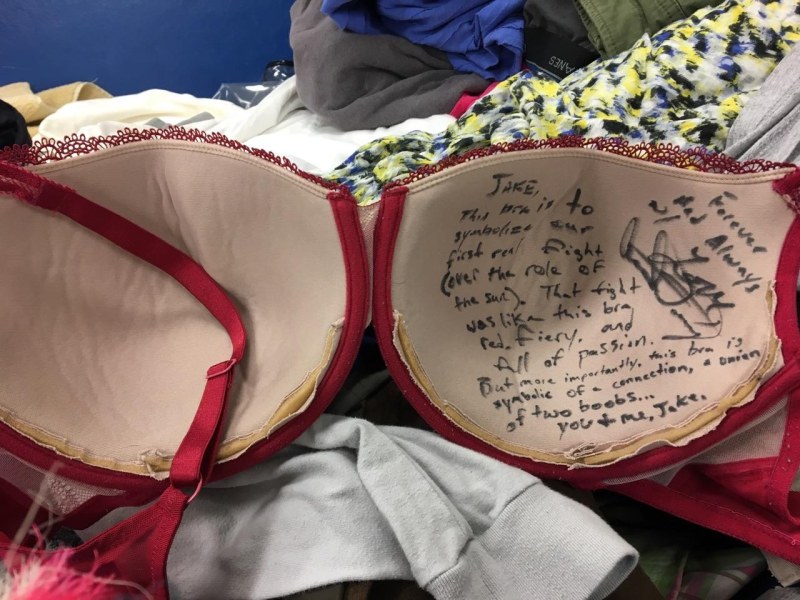 HANES
JAKE,
This bra is to
symbolize our
first real fight
(over the role of
the sun). That fight
was like this bra
red, fiery, and
All of passion.
But more importantly, this bra is
symbolic of a connection, a union
of two boobs...
you + me, Jake.
Forever
And Always